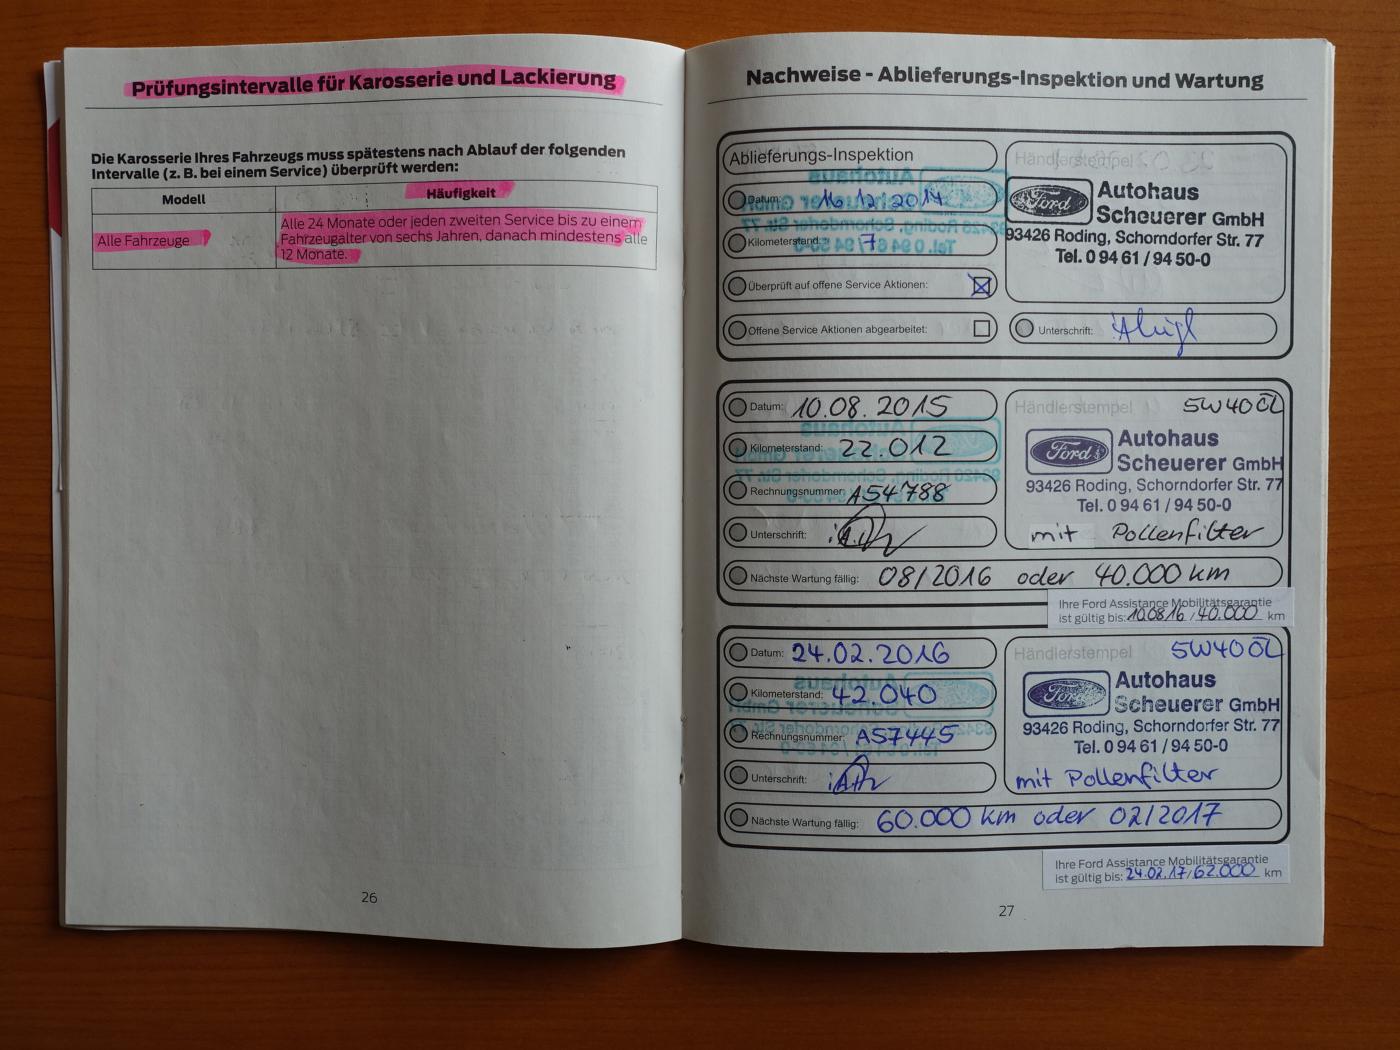 Prüfungsintervalle für Karosserie und Lackierung
Die Karosserie Ihres Fahrzeugs muss spätestens nach Ablauf der folgenden
Intervalle (z. B. bei einem Service) überprüft werden:
Modell
Häufigkeit
Alle Fahrzeuge
Alle 24 Monate oder jeden zweiten Service bis zu einem
Fahrzeugalter von sechs Jahren, danach mindestens alle
12 Monate.
26
Nachweise - Ablieferungs-Inspektion und Wartung
Ablieferungs-Inspektion
Datum: 16.12.2014
Kilometerstand: 7
Überprüft auf offene Service Aktionen:
Offene Service Aktionen abgearbeitet:
Händlerstempel
Ford
Autohaus
Scheuerer GmbH
93426 Roding, Schorndorfer Str. 77
Tel. 0 94 61 / 94 50-0
Unterschrift:
Datum: 10.08.2015
Kilometerstand: 22.012
Rechnungsnummer: A54788
Unterschrift:
Händlerstempel 5W40 ÖL
Ford
Autohaus
Scheuerer GmbH
93426 Roding, Schorndorfer Str. 77
Tel. 0 94 61 / 94 50-0
mit Pollenfilter
Nächste Wartung fällig: 08/2016 oder 40.000 km
Ihre Ford Assistance Mobilitätsgarantie
ist gültig bis: 10.08.16 / 40.000 km
Datum: 24.02.2016
Kilometerstand: 42.040
Rechnungsnummer: A57445
Unterschrift:
Händlerstempel 5W40 ÖL
Ford
Autohaus
Scheuerer GmbH
93426 Roding, Schorndorfer Str. 77
Tel. 0 94 61 / 94 50-0
mit Pollenfilter
Nächste Wartung fällig: 60.000 km oder 02/2017
Ihre Ford Assistance Mobilitätsgarantie
ist gültig bis: 24.02.17 / 62.000 km
27